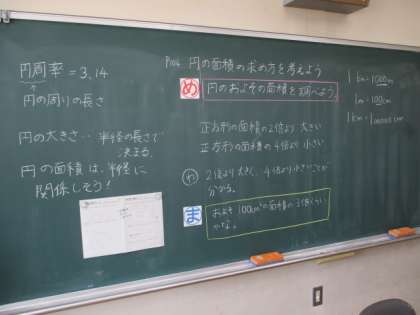 円周率 = 3.14
円の周りの長さ
円の大きさ‥半径の長さで
決まる。
円の面積は、半径に
関係しそう!
P104 円の面積の求め方を考えよう
め 円のおよその面積を調べよう。
正方形の面積の2倍より大きい
正方形の面積の4倍より小さい
わ 2倍より大きく、4倍より小さいことが
分かる。
ま およそ100cm²の面積の3倍くらい
かな。
1km=1000m
1m=100cm
1km=100000cm